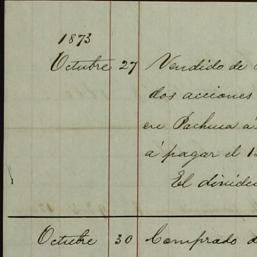 1873
Octubre 27 Vendido de
dos acciones
en Pachuca á
á pagar el 1
El divide
Octubre 30 Comprado d